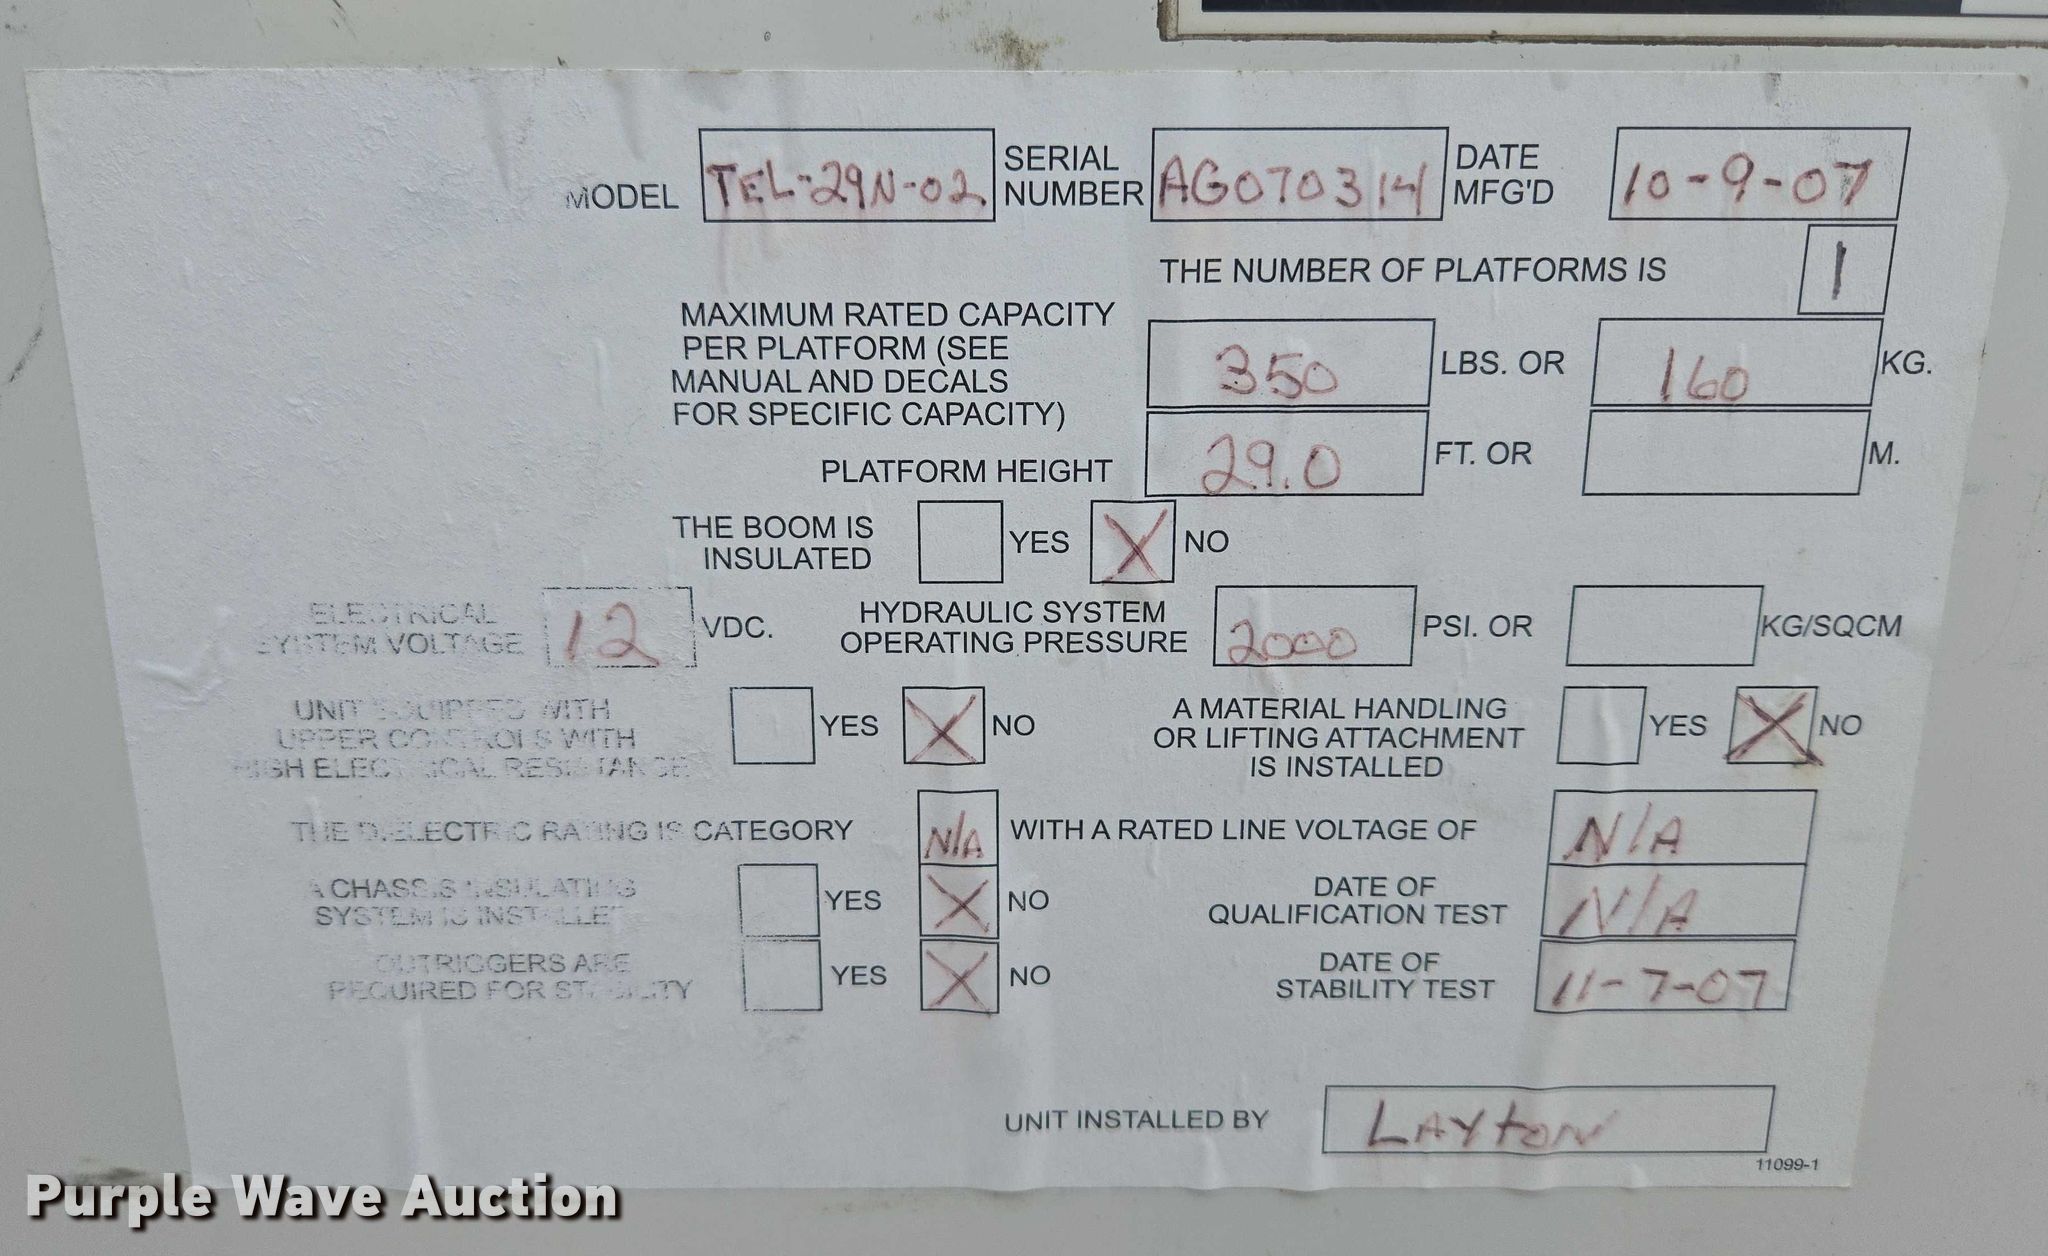 MODEL TEL-29N-02 SERIAL NUMBER AG070314 DATE MFG'D 10-9-07
THE NUMBER OF PLATFORMS IS 1
MAXIMUM RATED CAPACITY
PER PLATFORM (SEE
MANUAL AND DECALS
FOR SPECIFIC CAPACITY)
350 LBS. OR 160 KG.
PLATFORM HEIGHT 29.0 FT. OR M.
THE BOOM IS
INSULATED
YES X NO
ELECTRICAL
SYSTEM VOLTAGE
12 VDC.
HYDRAULIC SYSTEM
OPERATING PRESSURE
2000 PSI. OR KG/SQCM
UNIT EQUIPPED WITH
UPPER CONTROLS WITH
HIGH ELECTRICAL RESISTANCE
YES X NO
A MATERIAL HANDLING
OR LIFTING ATTACHMENT
IS INSTALLED
YES X NO
THE DIELECTRIC RATING IS CATEGORY N/A WITH A RATED LINE VOLTAGE OF N/A
A CHASSIS INSULATING
SYSTEM IS INSTALLED
YES X NO
DATE OF
QUALIFICATION TEST
N/A
OUTRIGGERS ARE
REQUIRED FOR STABILITY
YES X NO
DATE OF
STABILITY TEST
11-7-07
UNIT INSTALLED BY LAYTON
11099-1
Purple Wave Auction